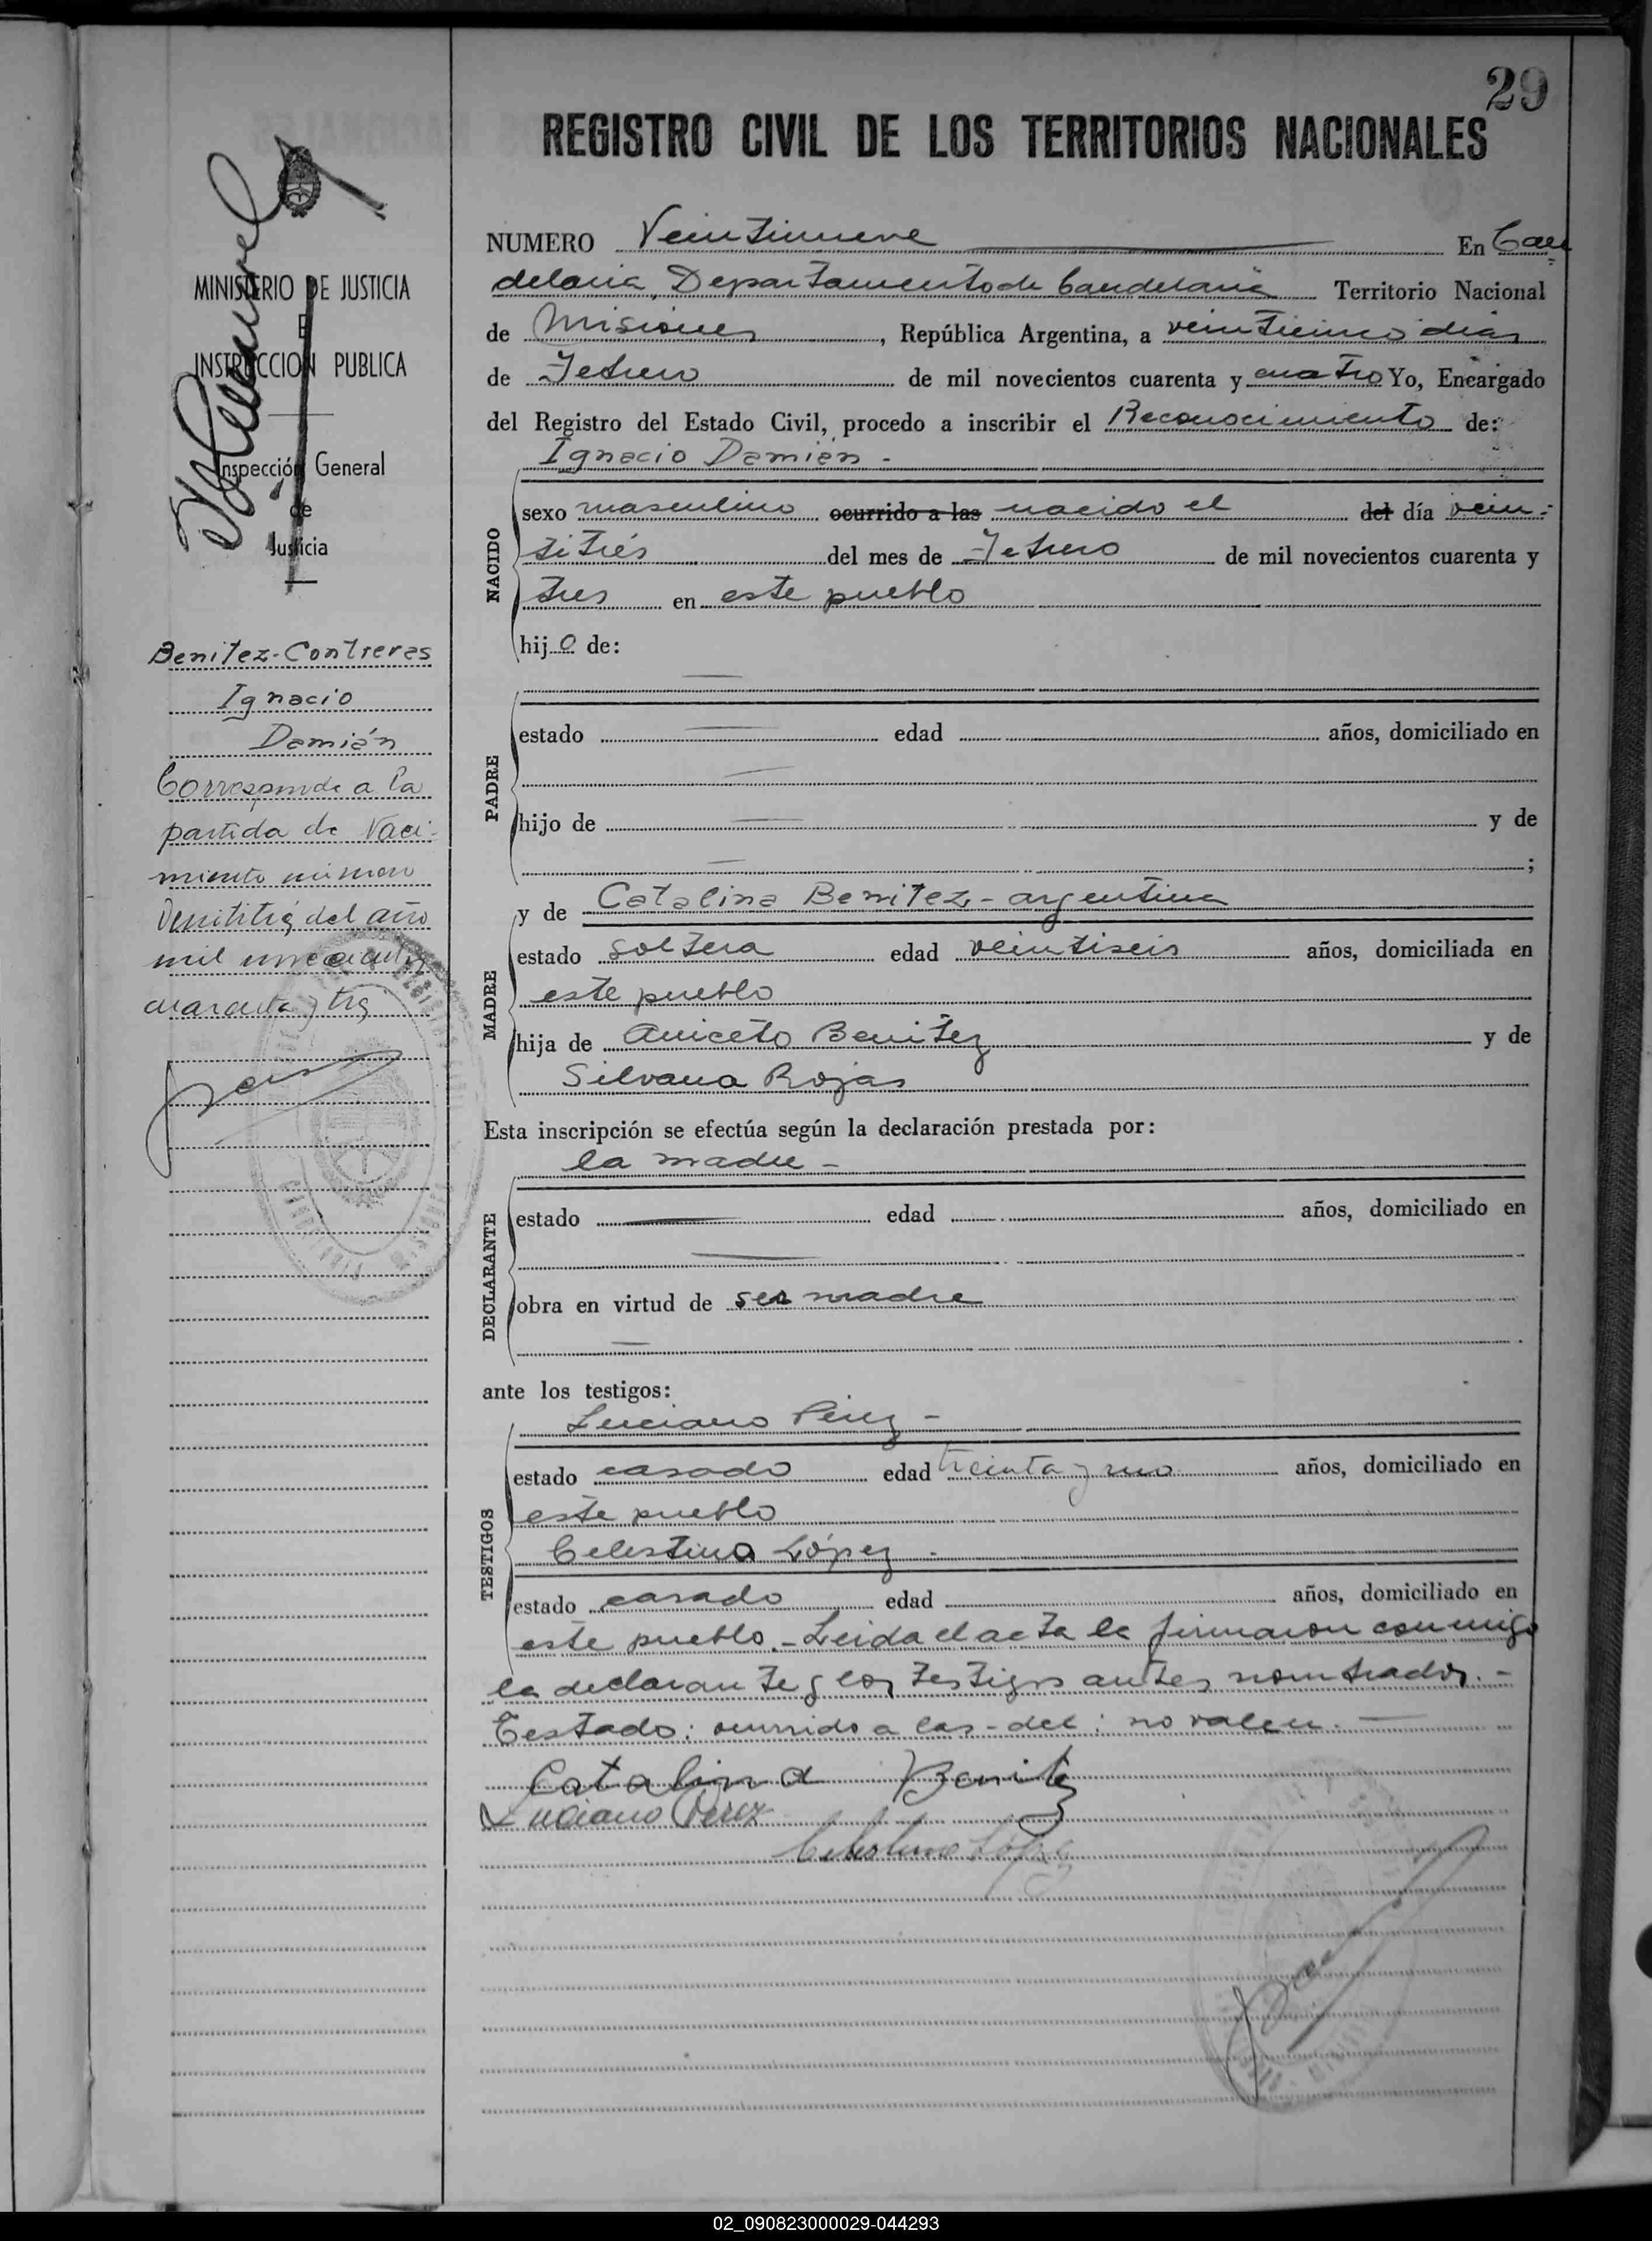 29
REGISTRO CIVIL DE LOS TERRITORIOS NACIONALES
MINISTERIO DE JUSTICIA
E
INSTRUCCION PUBLICA
Inspección General
de
Justicia
Benitez-Contreras
Ignacio
Damián
Corresponde a la
partida de Naci-
miento número
del año
mil novecientos
cuarenta y tres
NUMERO Veintinueve En Can
delaria, Departamento de Candelaria Territorio Nacional
de Misiones, República Argentina, a veinticinco dias
de Febrero de mil novecientos cuarenta y cuatro Yo, Encargado
del Registro del Estado Civil, procedo a inscribir el Reconocimiento de:
Ignacio Damián -
NACIDO
sexo masculino ocurrido a las nacido el del día vein-
titrés del mes de Febrero de mil novecientos cuarenta y
tres en este pueblo
hijo de:
PADRE
estado edad años, domiciliado en
hijo de y de
;
MADRE
y de Catalina Benitez - argentina
estado soltera edad veintiseis años, domiciliada en
este pueblo
hija de Aniceto Benitez y de
Silvana Rojas
Esta inscripción se efectúa según la declaración prestada por:
la madre -
DECLARANTE
estado edad años, domiciliado en
obra en virtud de ser madre
ante los testigos:
TESTIGOS
Luciano Pérez -
estado casado edad treinta y uno años, domiciliado en
este pueblo
Celestino López -
estado casado edad años, domiciliado en
este pueblo. - Leida el acta la firmaron conmigo
la declarante y los testigos antes nombrados. -
Testado: ocurrido a las - del: no valen. -
Catalina Benitez
Luciano Perez
Celestino López
CANDELARIA
MISIONES
02_090823000029-044293